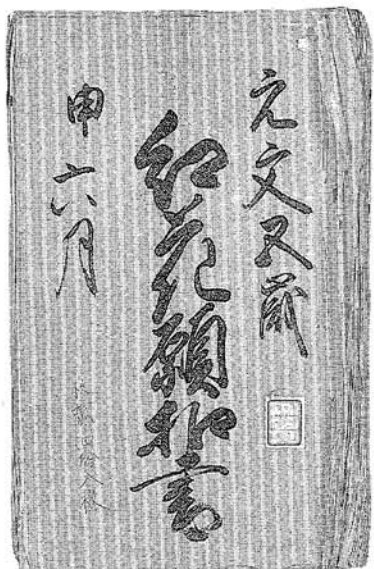 元文五歳
紅花願扣書
申六月